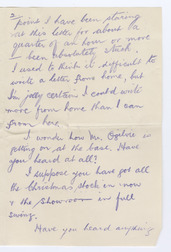 2
point I have been staring
at this letter for about a
quarter of an hour or more
I been absolutely stuck.
I used to think it difficult to
write a letter from home, but
I'm pretty certain I could write
more from home than I can
from here.
I wonder how Mr. Ogilvie is
getting on at the base. Have
you heard at all?
I suppose you have got all
the Christmas stock in now
& the showroom in full
swing.
Have you heard anything